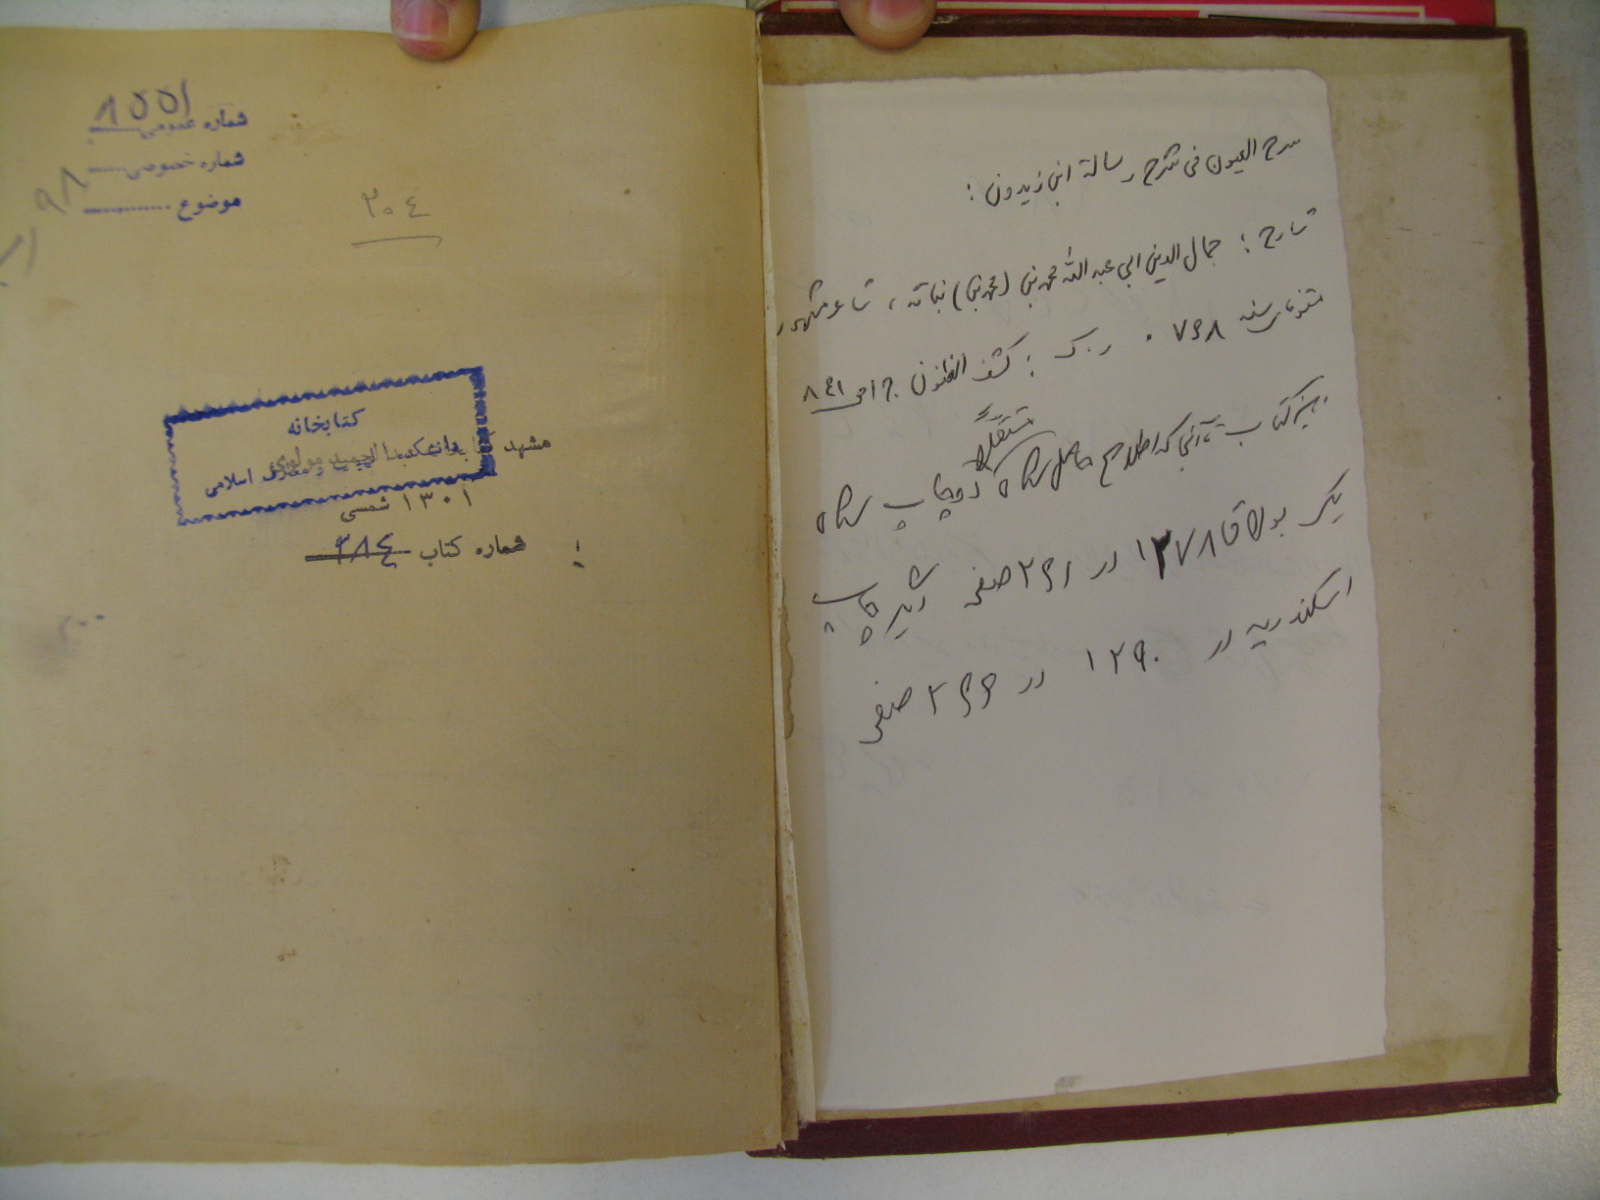 سرح العیون فی شرح رسالة ابن زیدون :
شارح : جمال الدین ابی عبد الله محمد بن (محمد بن) نباته ، شاعر مشهور
متوفای سنه ۷۶۸ . ر.ک : کشف الظنون ج ۱ ص ۸۴۱
این کتاب تا آنجا که اطلاع حاصل شده مستقلاً دو چاپ شده
یکی بولاق ۱۲۷۸ در ۲۶۱ صفحه دیگر چاپ
اسکندریه در ۱۲۹۰ در ۲۶۶ صفحه
شماره عمومی ۸۵۵۱
شماره خصوصی
موضوع
۹۸
۲۰٤
کتابخانه
دانشکده الهیات و معارف اسلامی
مشهد
۱۳۰۱ شمسی
شماره کتاب ۲۸٤